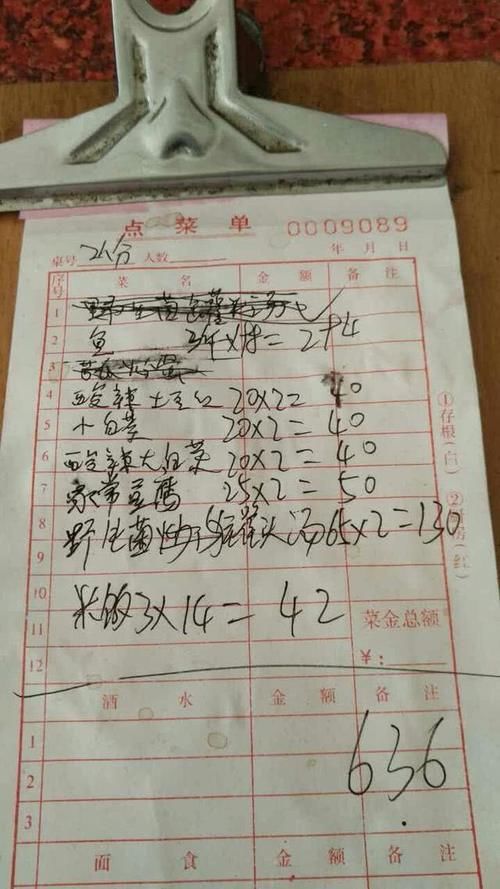 点菜单 0009089
桌号 人数 年 月 日
序号 菜名 金额 备注
1
2 鱼 =294
3
4 酸辣土豆丝 20×2= 40
5 小白菜 20×2=40
6 酸辣大白菜 20×2=40
7 家常豆腐 25×2=50
8 野生菌 汤65×2=130
9
10 米饭3×14=42
11 菜金总额
12 ¥:
①存根(白) ②厨房(红)
酒水 金额 备注
1
2 636
3
面食 金额 备注